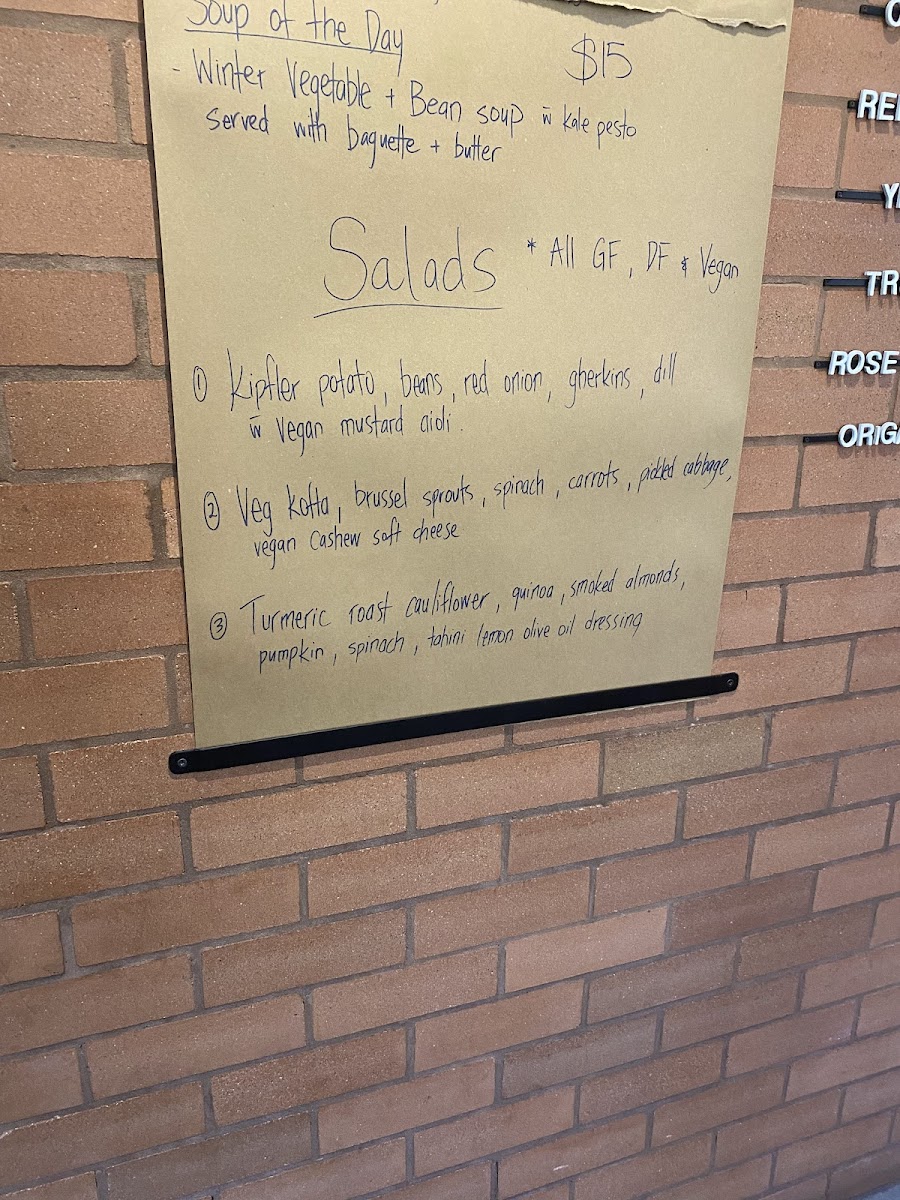 Soup of the Day
$15
- Winter Vegetable + Bean soup w̄ kale pesto
served with baguette + butter
Salads * All GF, DF & Vegan
① Kipfler potato, beans, red onion, gherkins, dill
w̄ vegan mustard aioli.
② Veg Kofta, brussel sprouts, spinach, carrots, pickled cabbage,
vegan cashew soft cheese
③ Turmeric roast cauliflower, quinoa, smoked almonds,
pumpkin, spinach, tahini lemon olive oil dressing
ROSE